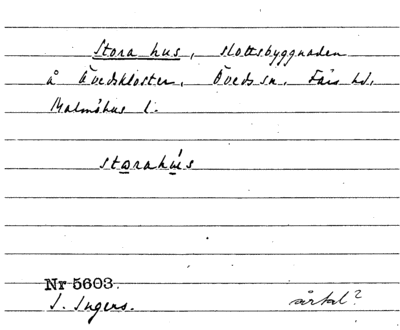 Stora hus, slottsbyggnaden
å Övedskloster, Öveds sn. Färs hd,
Malmöhus l.
storahùs
Nr 5603.
I. Ingers.